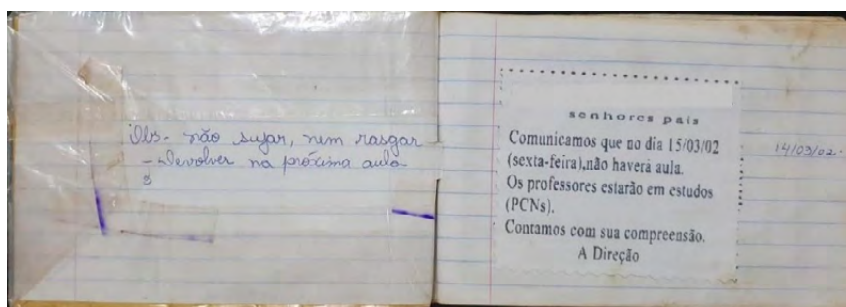 Obs- não sujar, nem rasgar
- Devolver na próxima aula
senhores pais
Comunicamos que no dia 15/03/02
(sexta-feira),não haverá aula.
Os professores estarão em estudos
(PCNs).
Contamos com sua compreensão.
A Direção
14/03/02.